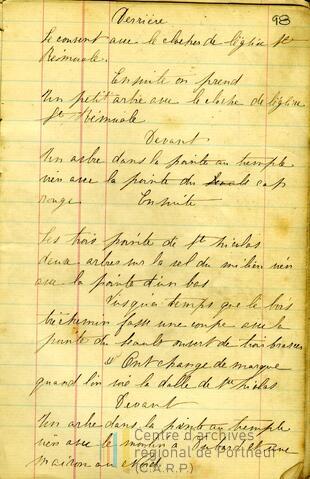 98
Derrière
Le couvent avec le clocher de l'église St
Rémuale.
Ensuite on prend
Un petit arbre avec le cloche de l'église
St Rémuale
Devant
Un arbre dans la pointe au temple
vien avec la pointe du cap
rouge Ensuite
Les trois pointe de St Nicolas
deux arbres sur la sel du milieu vien
avec la pointe d'un bas
Jusqu'a temps que le bois
fasse une coupe avec la
pointe du sault ouvert de trois brasses
" Ont change de marque
quand l'on voie la dalle de St Nicolas
Devant
Un arbre dans la pointe au temple
vien avec le moulin a et une
maison au
Centre d'archives
régional de Portneuf
(C.A.R.P.)